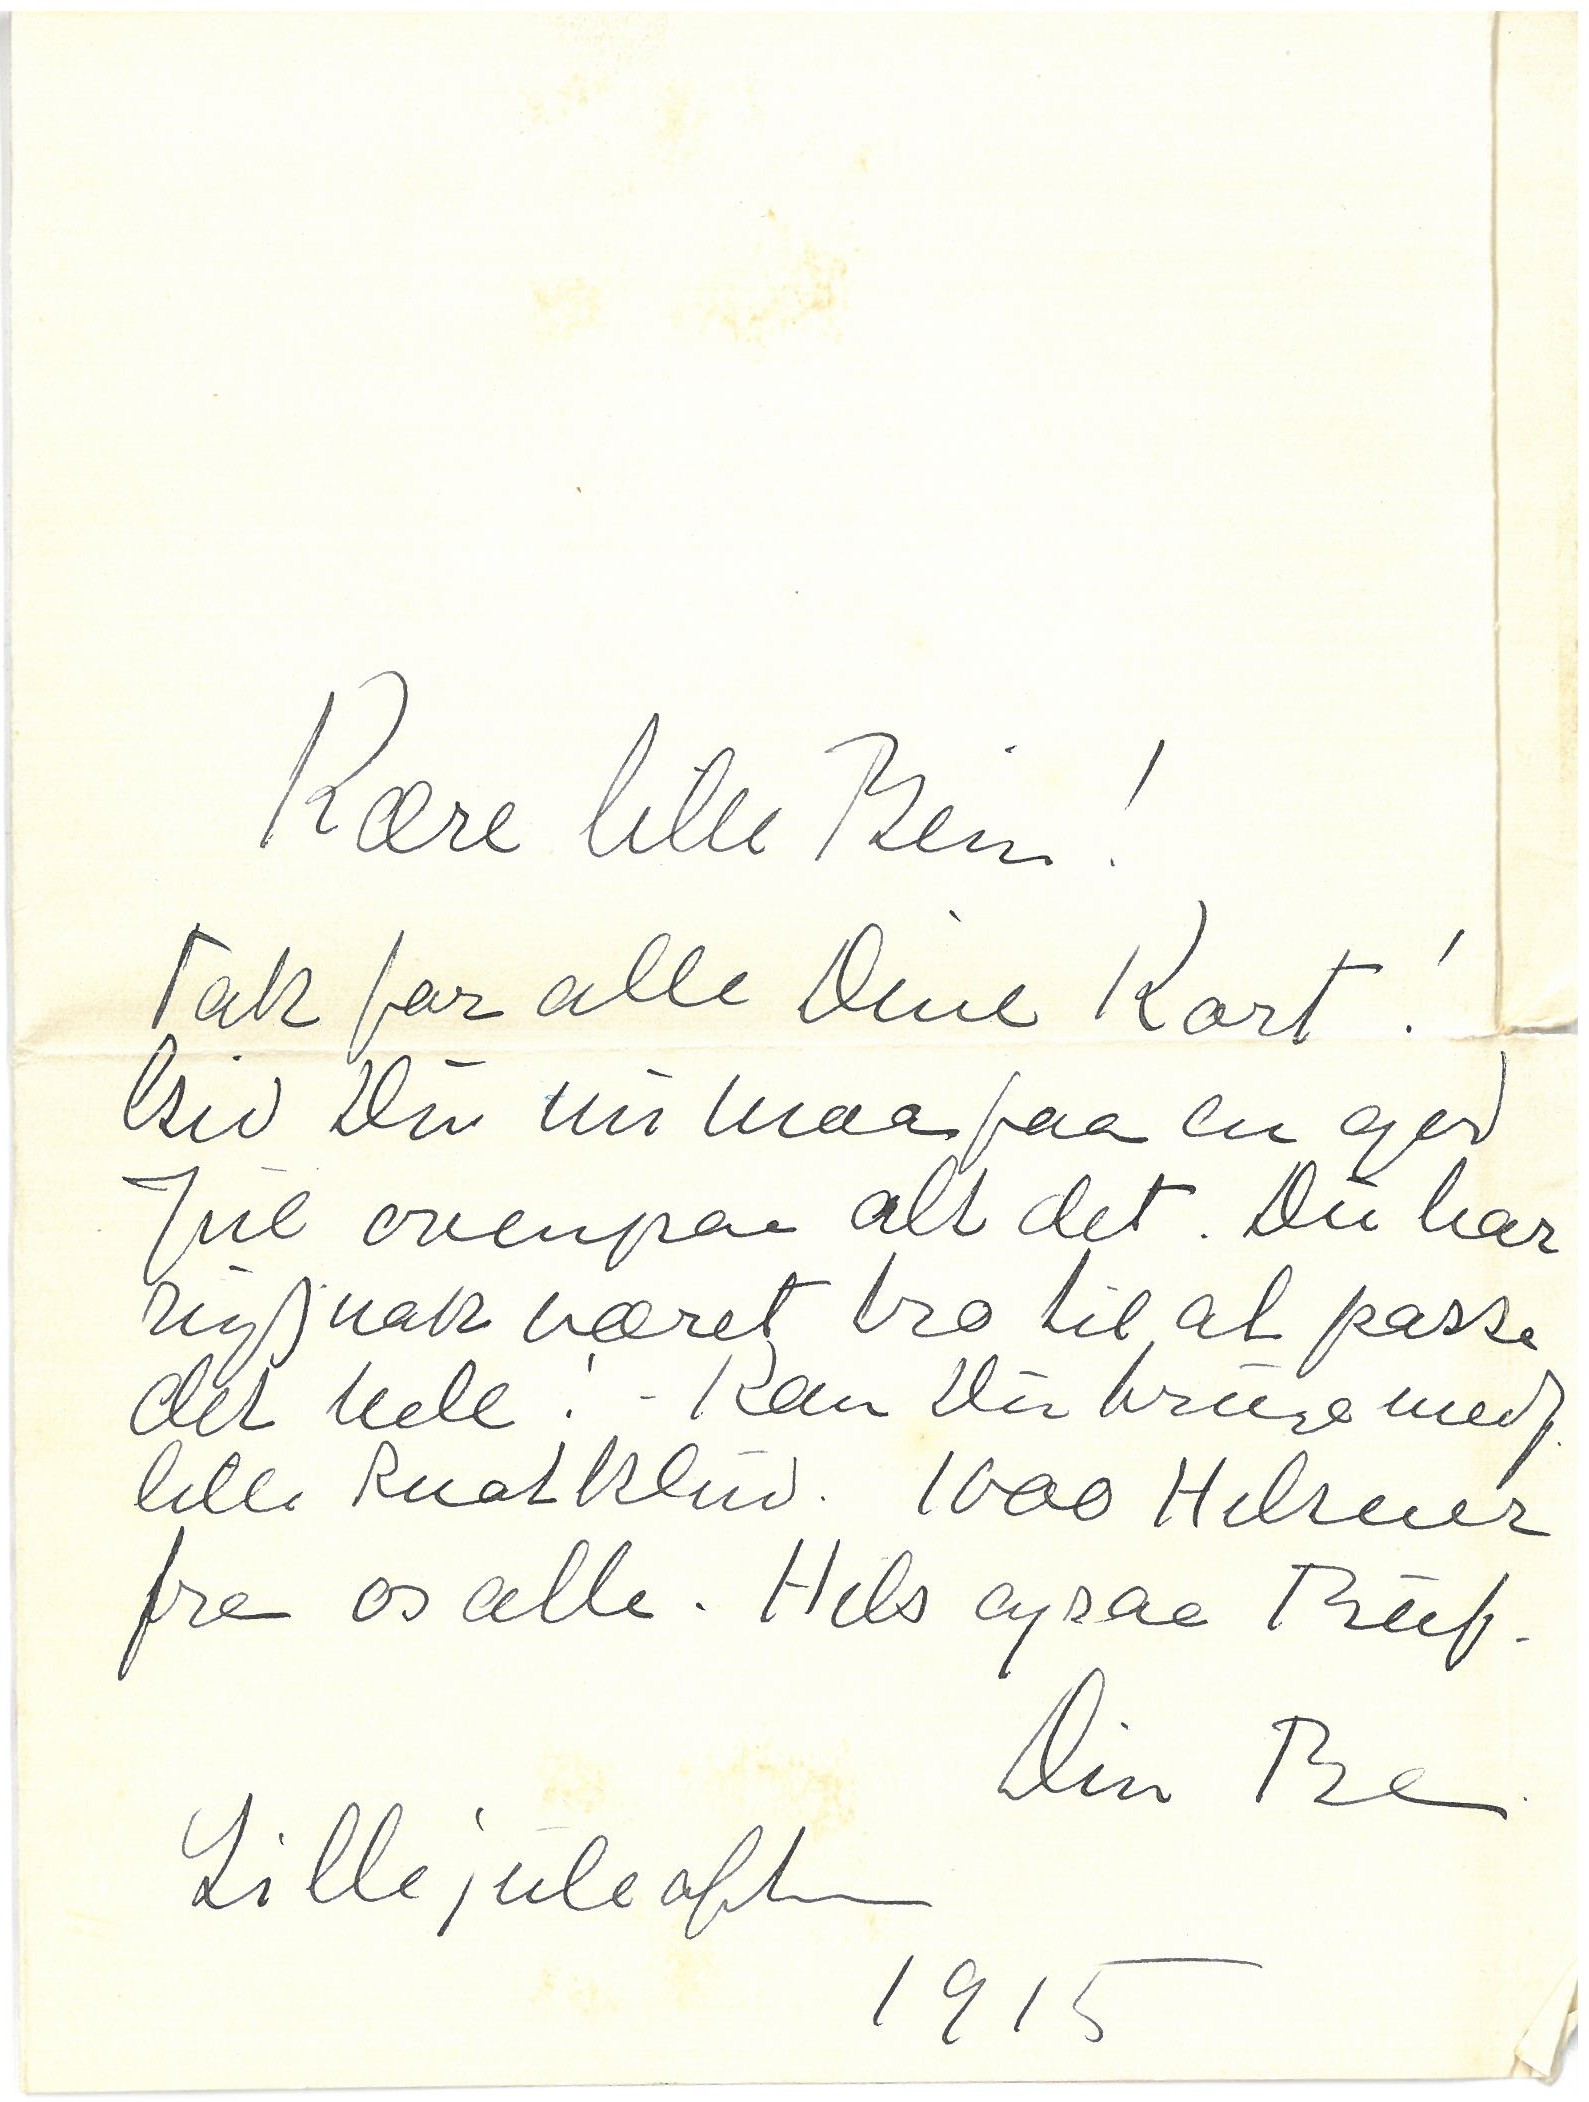 Kære lille Bein!
Tak for alle Dine Kort!
Gid Du nu maa faa en god
Jul ovenpaa alt det. Du har
rigtignok været tro til at passe
det hele! - Kan Du bruge medf.
lille Knatklud. 1000 Hilsner
fra os alle. Hils ogsaa Buf.
Din Be
Lillejuleaften
1915